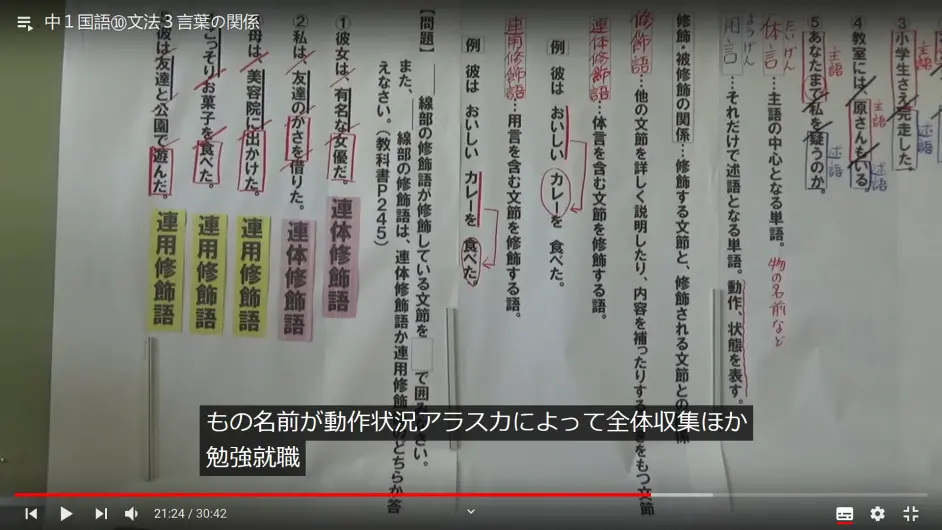 中１国語⑩文法３言葉の関係
３小学生さえ完走した。
主語
述語
４教室には、原さんもいる。
主語
述語
５あなたまで私を疑うのか。
主語
述語
たいげん
体言…主語の中心となる単語。 物の名前など
ようげん
用言…それだけで述語となる単語。動作、状態を表す。
修飾・被修飾の関係…修飾する文節と、修飾される文節との
修飾語…他の文節を詳しく説明したり、内容を補ったりする
をもつ文節
連体修飾語…体言を含む文節を修飾する。
例 彼は おいしい カレーを 食べた。
連用修飾語…用言を含む文節を修飾する。
例 彼は おいしい カレーを 食べた。
【問題】 線部の修飾語が修飾している文節を で囲 さい。
また、 線部の修飾語は、連体修飾語か連用修飾 のどちらか答
えなさい。（教科書Ｐ２４５）
①彼女は、有名な女優だ。
連体修飾語
②私は、友達のかさを借りた。
連体修飾語
母は、美容院に出かけた。
連用修飾語
こっそりお菓子を食べた。
連用修飾語
彼は友達と公園で遊んだ。
連用修飾語
もの名前が動作状況アラスカによって全体収集ほか
勉強就職
21:24 / 30:42